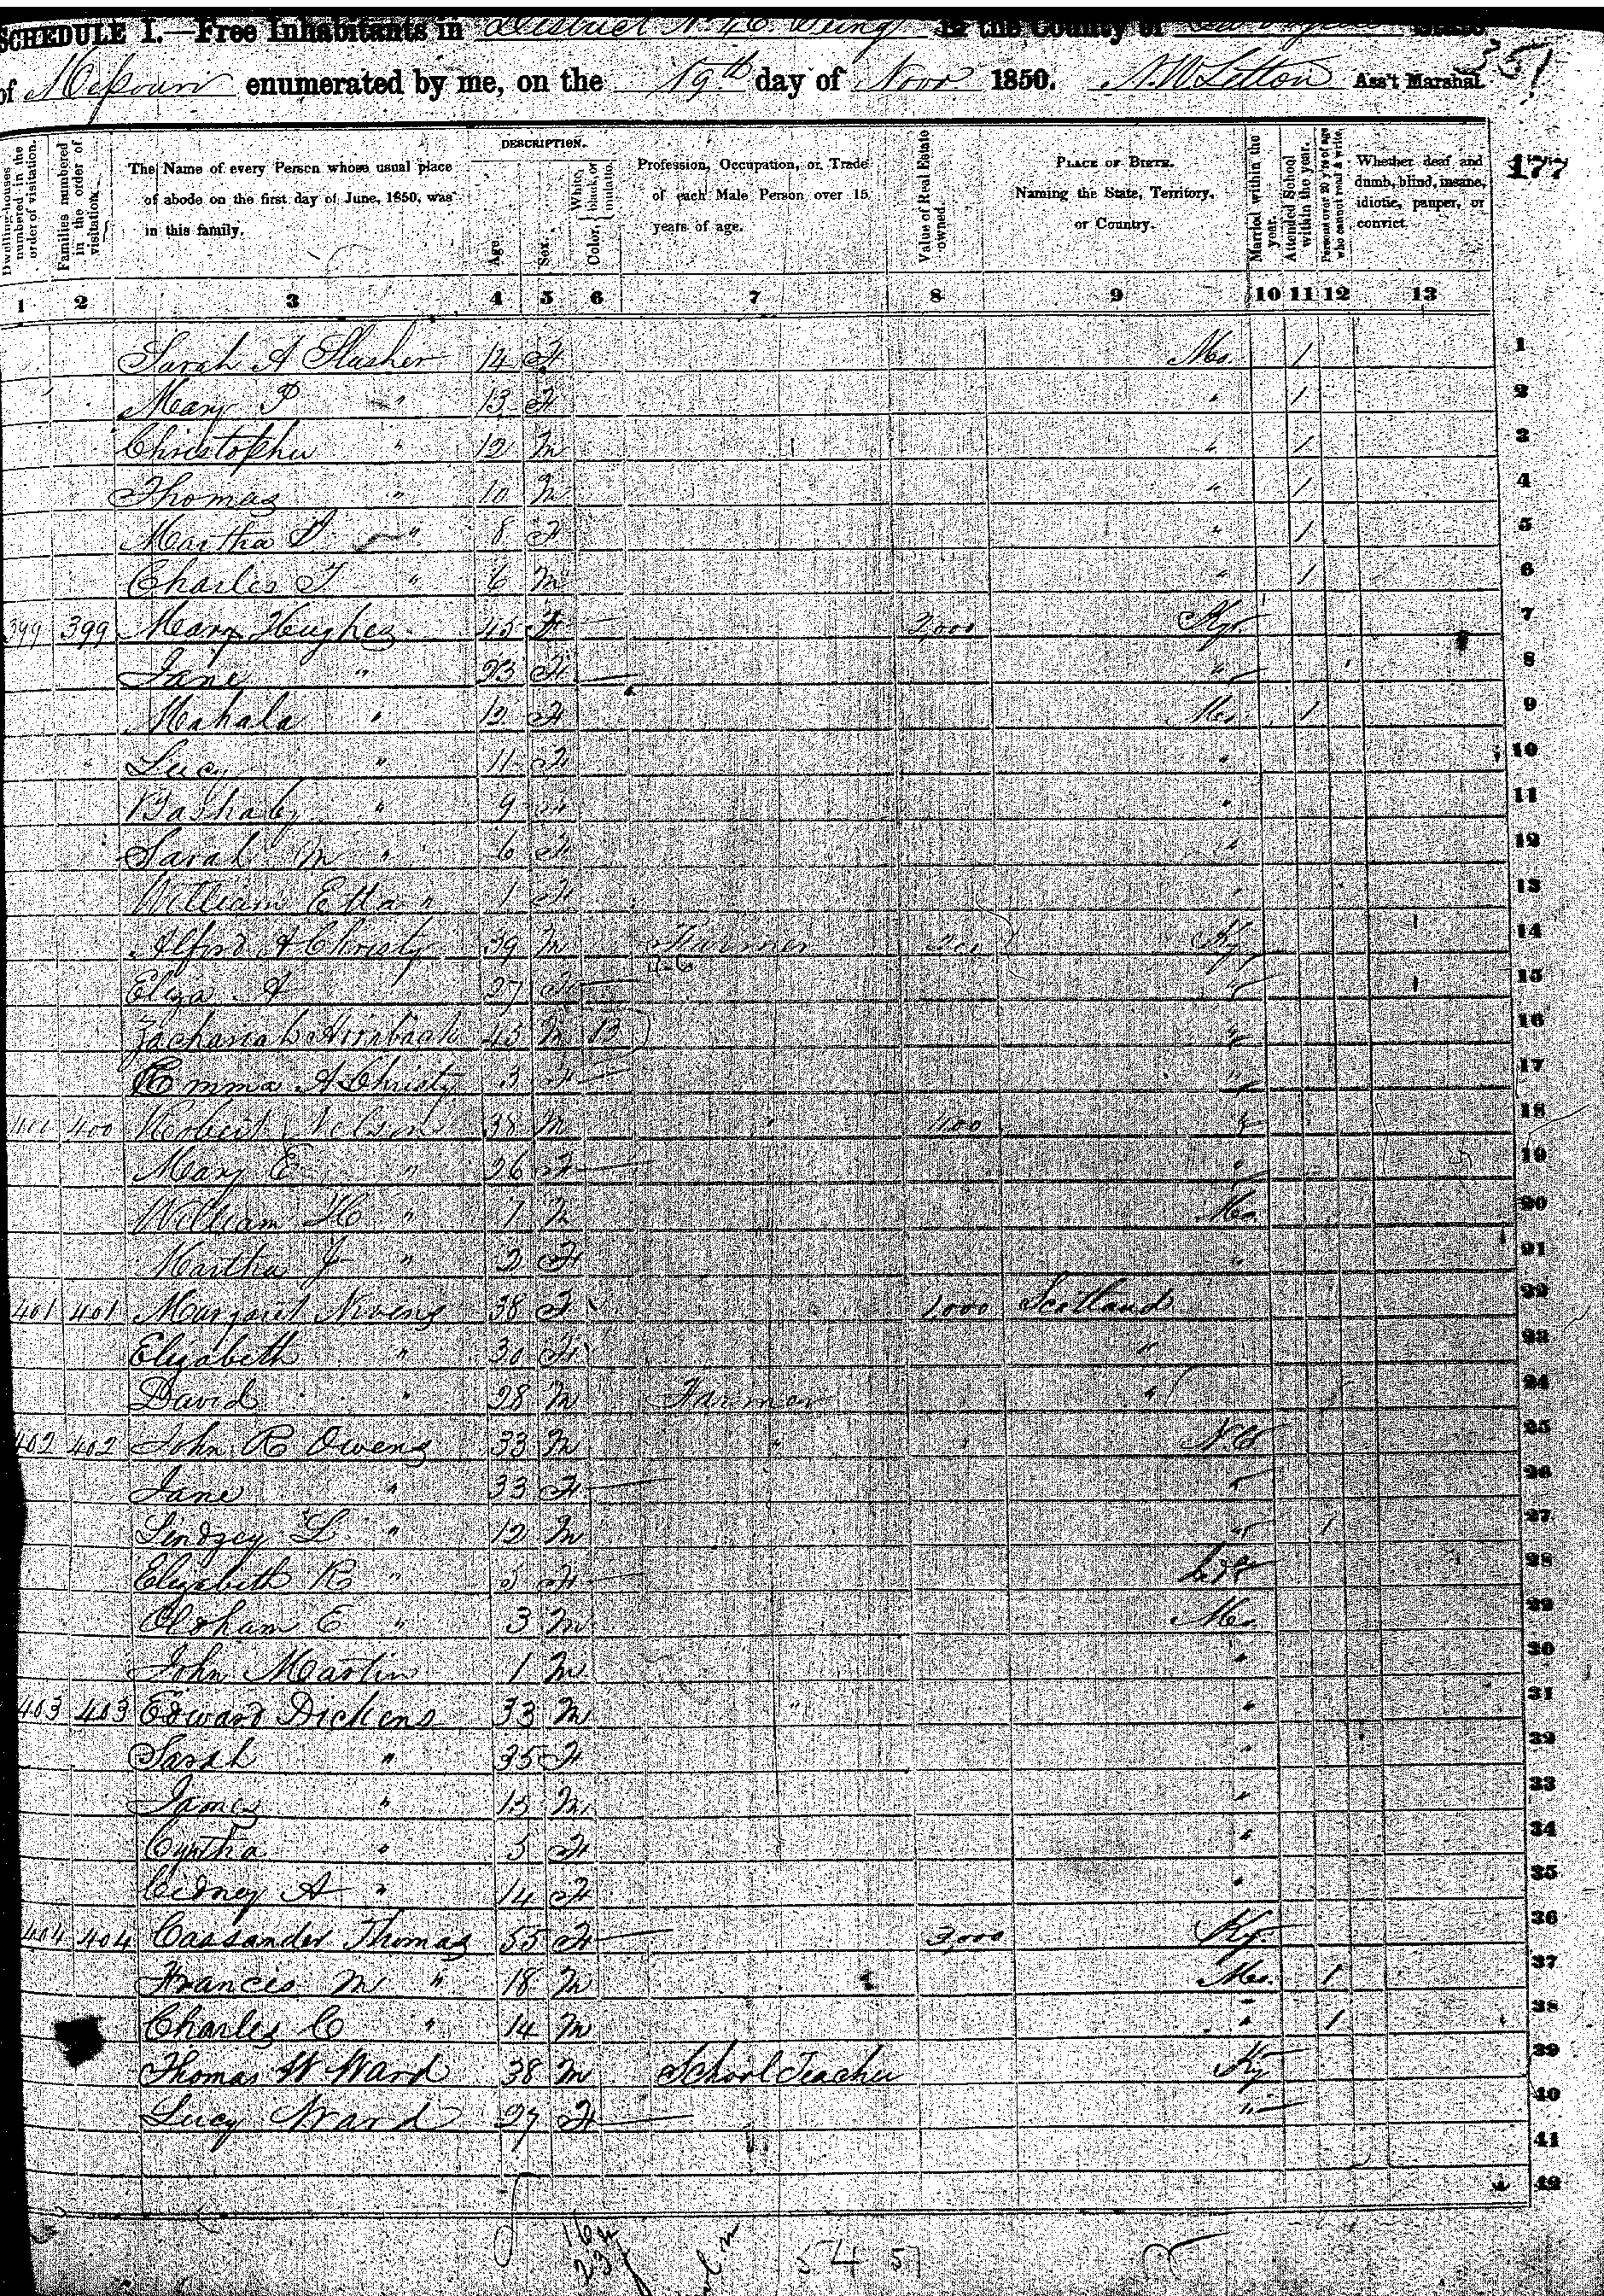 SCHEDULE I.—Free Inhabitants in District No 46 in the County of State
of Missouri enumerated by me, on the 19th day of Novr 1850. N. W. Letton Ass't Marshal. 351
177
Dwelling-houses numbered in the order of visitation.
Families numbered in the order of visitation.
The Name of every Person whose usual place of abode on the first day of June, 1850, was in this family.
DESCRIPTION.
Age.
Sex.
Color, White, black, or mulatto.
Profession, Occupation, or Trade of each Male Person over 15 years of age.
Value of Real Estate owned.
PLACE OF BIRTH. Naming the State, Territory, or Country.
Married within the year.
Attended School within the year.
Persons over 20 y'rs of age who cannot read & write.
Whether deaf and dumb, blind, insane, idiotic, pauper, or convict.
1 2 3 4 5 6 7 8 9 10 11 12 13
Sarah A Slusher 14 F Mo. 1 1
Mary P " 13 F " 1 2
Christopher " 12 M " 1 3
Thomas " 10 M " 1 4
Martha " 8 F " 1 5
Charles T " 6 M " 1 6
399 399 Mary Hughes 45 F 2,000 Ky. 7
Jane " 23 F " 8
Mahala " 12 F Mo. 1 9
Lucy " 11 F " 10
" 9 F " 11
Sarah M " 6 F " 12
William " 1 F " 13
Alford A Christy 39 M Farmer 200 Ky 14
Eliza A 27 F " 15
Zachariah 45 M B " 16
Emma A Christy 3 F " 17
400 400 Robert Nelson 38 M " 400 " 18
Mary E " 26 F " 19
William H " 7 M Mo. 20
Martha J " 2 F " 21
401 401 Margaret Nivens 38 F 1,000 Scotland 22
Elizabeth " 30 F " 23
David " 28 M Farmer " 24
402 402 John R Owens 33 M " N.C 25
Jane " 33 F " 26
Lindzey L " 12 M " 1 27
Elizabeth R " 5 F 28
Oldham E " 3 M Mo. 29
John Martin 1 M " 30
403 403 Edward Dickens 33 M " " 31
Sarah " 35 F " 32
James " 13 M " 33
Cyntha " 5 F " 34
Cidney A " 14 F " 35
404 404 Cassander Thomas 55 F 3,000 Ky. 36
Francis M " 18 M Mo. 1 37
Charles C " 14 M " 1 38
Thomas W Ward 38 M School Teacher Ky 39
Lucy Ward 27 F " 40
41
42
16 m
23 f
54 57